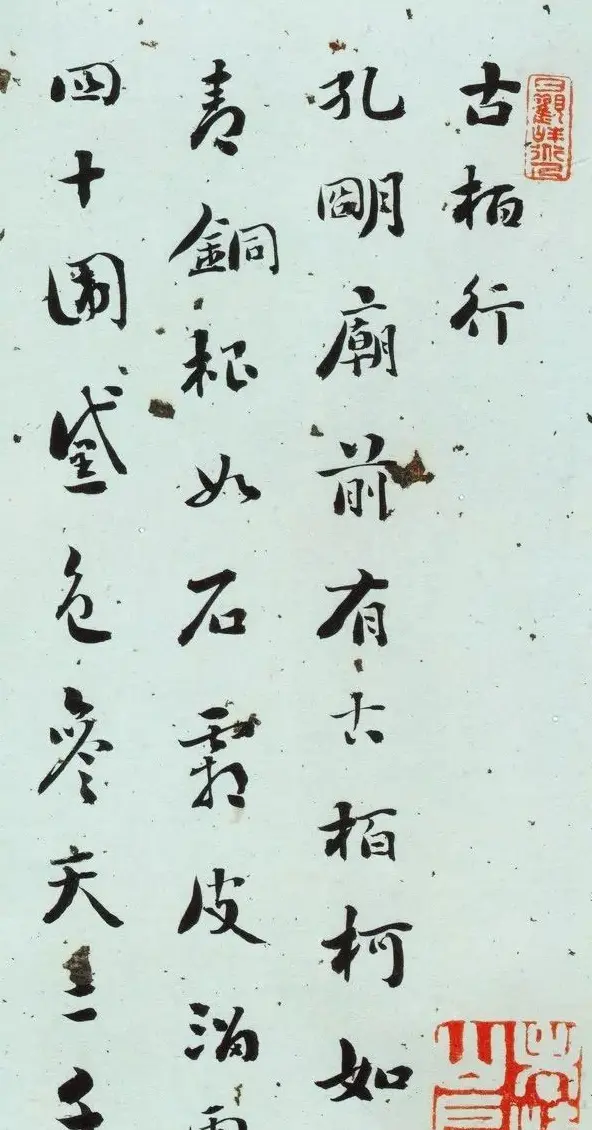 古栢行
孔朙廟前有古栢柯如
青銅根如石霜皮溜雨
四十圍黛色參天二千